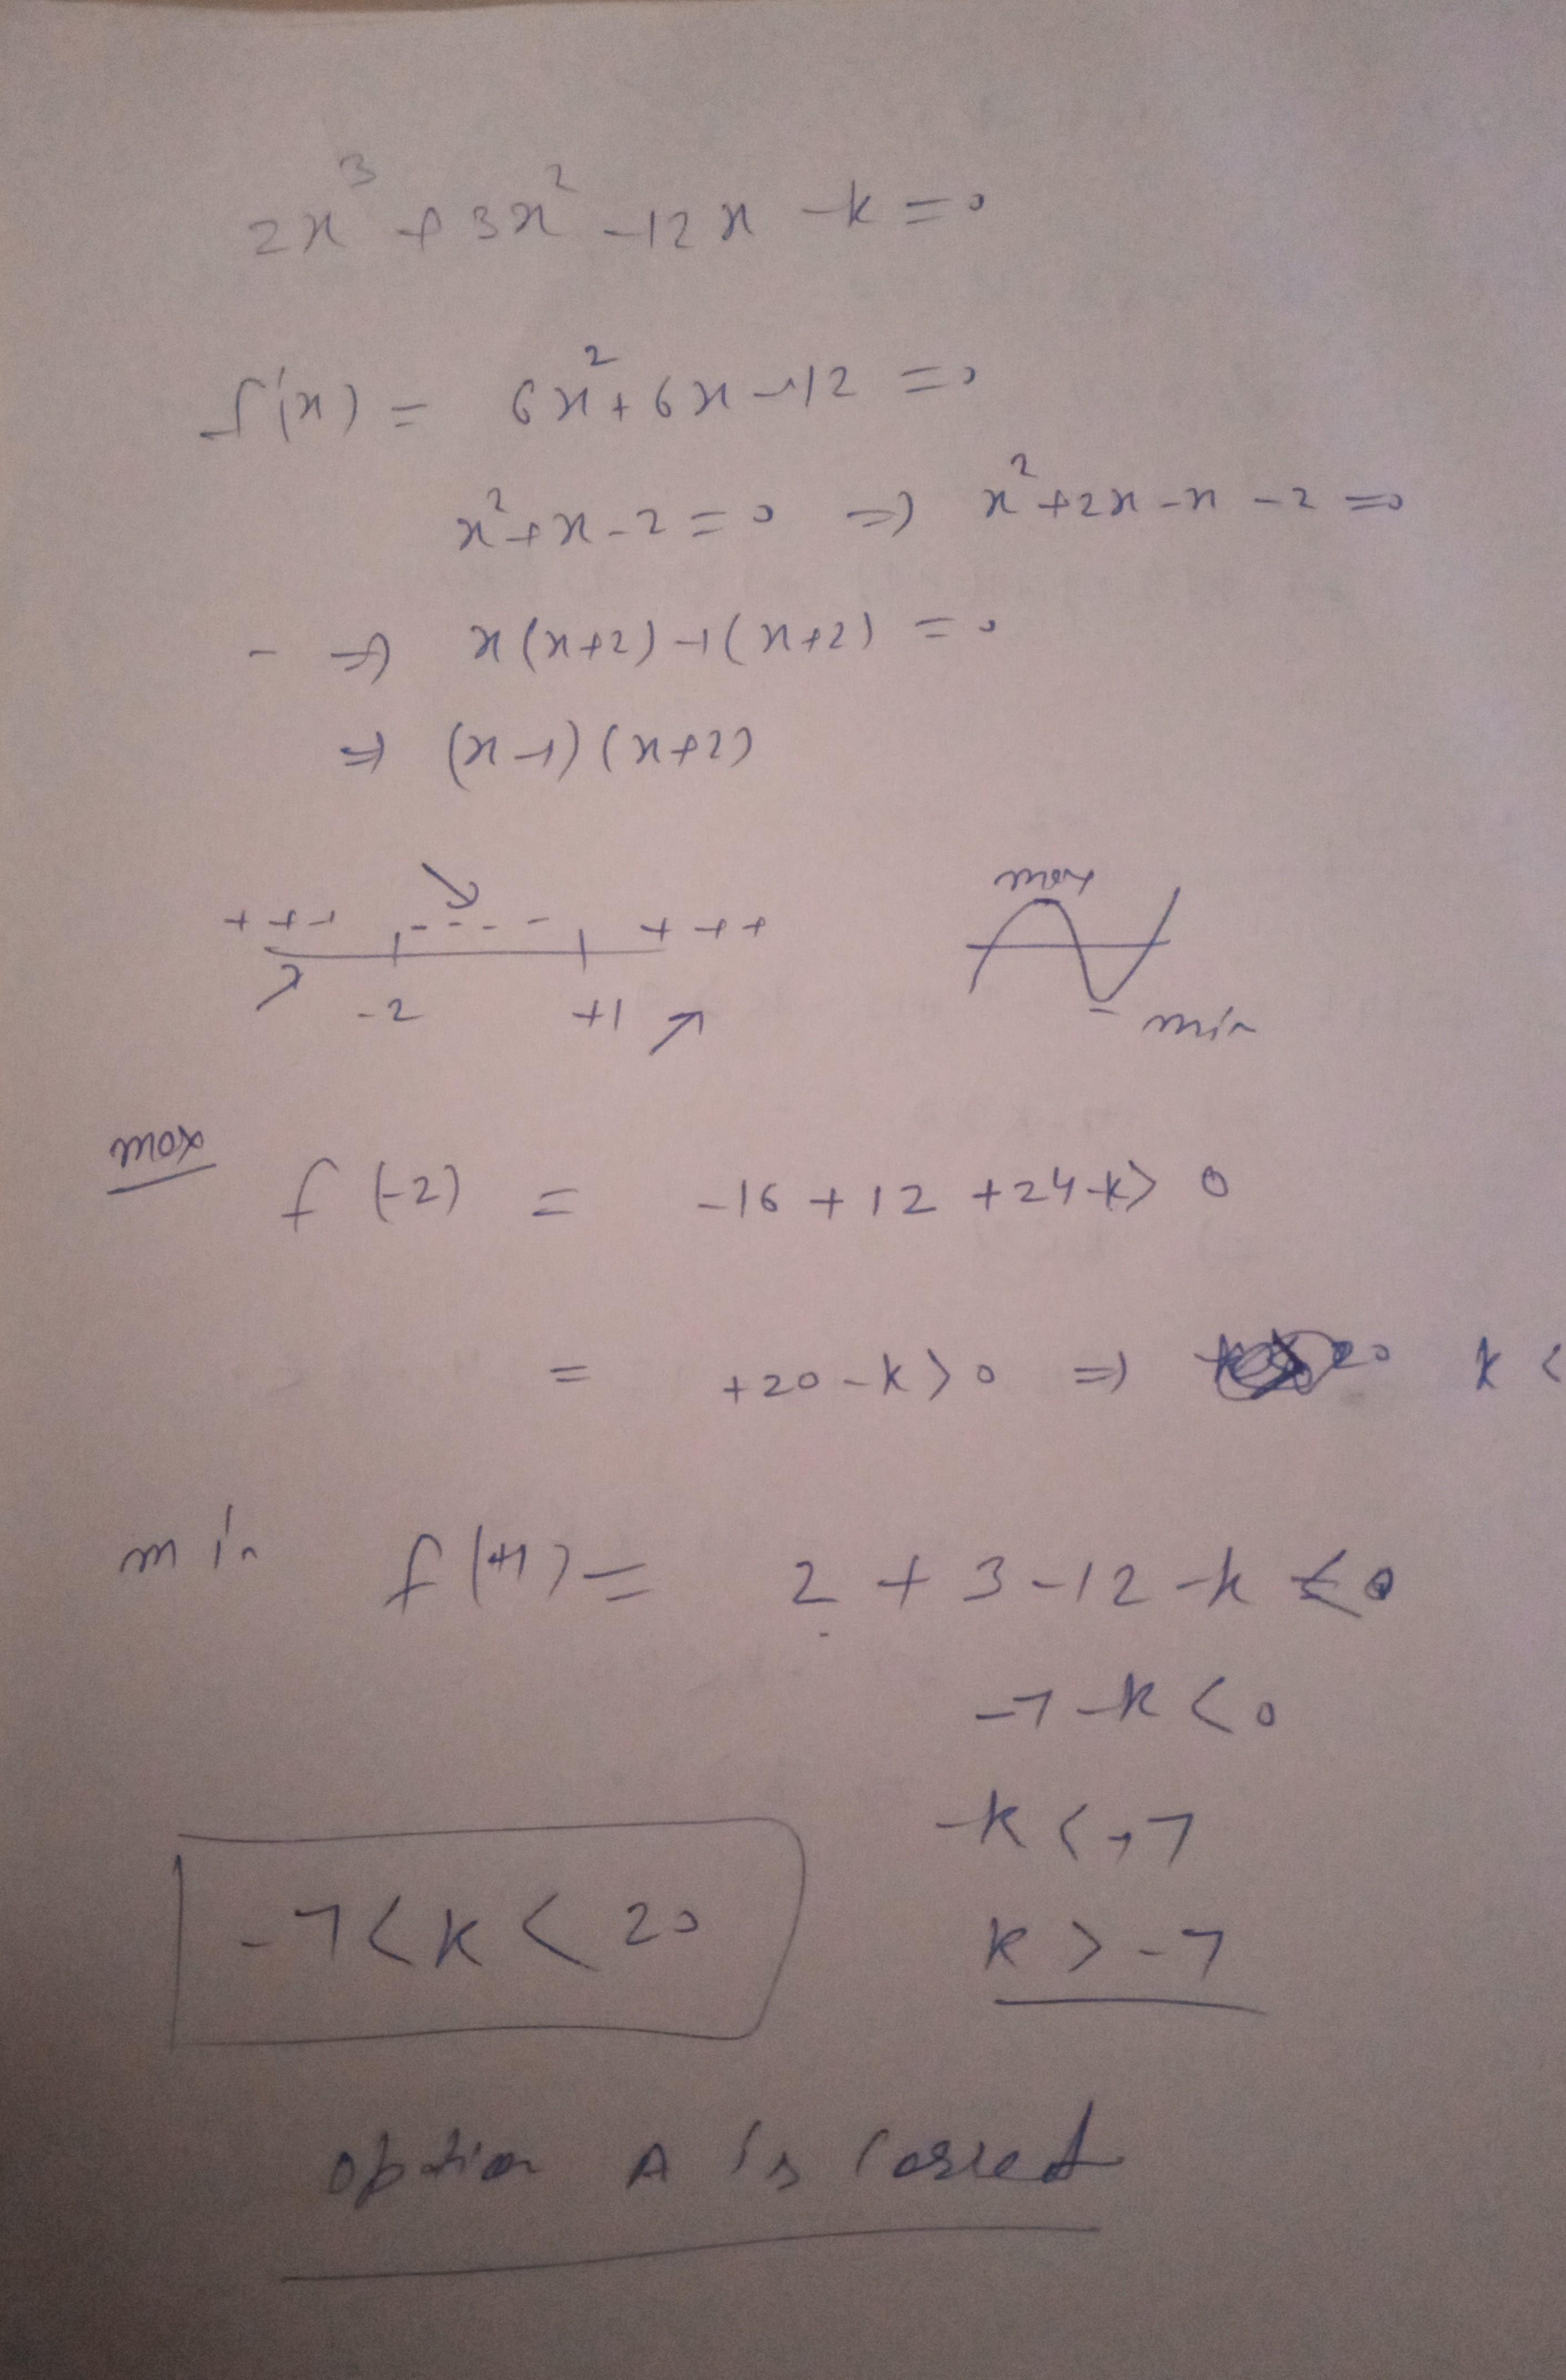 2x³ + 3x² - 12x - k = 0
f'(x) = 6x² + 6x - 12 = 0
x² + x - 2 = 0 ⇒ x² + 2x - x - 2 = 0
- ⇒ x(x+2) -1(x+2) = 0
⇒ (x-1)(x+2)
max
+ + + - - - - + + +
-2 +1
min
max f(-2) = -16 + 12 + 24 - k > 0
= +20 - k > 0 ⇒ 20 k <
min f(+1) = 2 + 3 - 12 - k < 0
-7 - k < 0
-k < +7
-7 < k < 20
k > -7
option A is correct